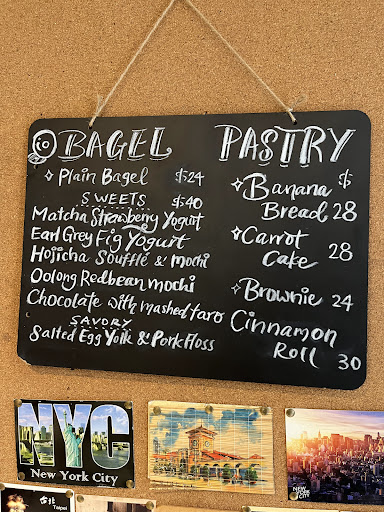 BAGEL
Plain Bagel $24
SWEETS $40
Matcha Strawberry Yogurt
Earl Grey Fig Yogurt
Hojicha Soufflé & mochi
Oolong Redbean mochi
Chocolate with mashed taro
SAVORY
Salted Egg Yolk & Pork Floss
PASTRY
$
Banana
Bread 28
Carrot
Cake 28
Brownie 24
Cinnamon
Roll 30
NYC
New York City
NEW
YORK
CITY
台北 Taipei